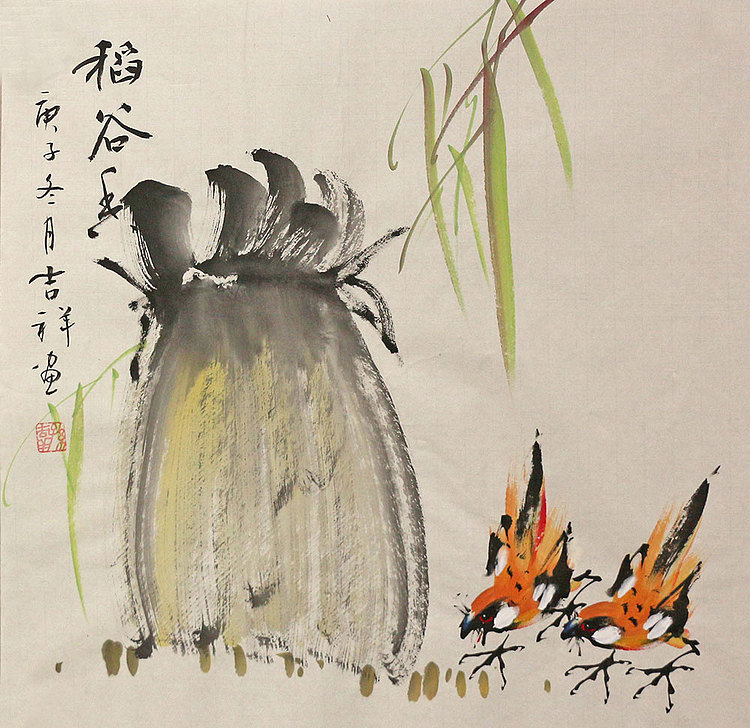 稻谷香
庚子冬月吉祥画